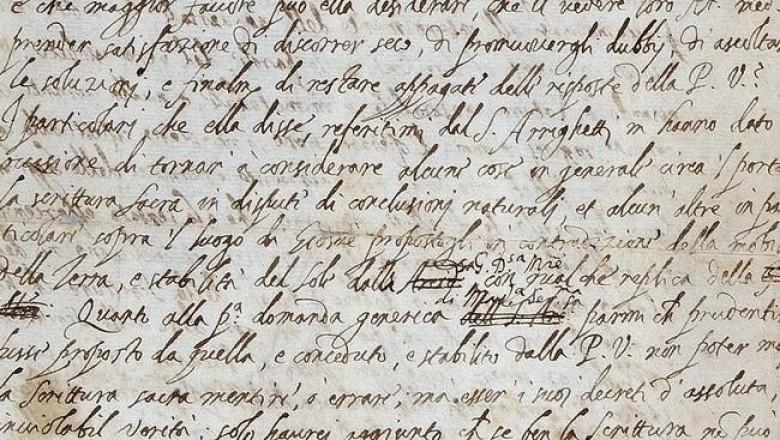 e che maggior favore può ella desiderare, che il vedere loro Alt. med
prender satisfazione di discorrer seco, di promuovergli dubbij, di ascolta
le soluzioni, e finalm.e di restare appagate delle risposte della P. V.?
I particolari che ella disse, referitimi dal S. Arrighetti, m hanno dato
occasione di tornar' à considerare alcune cose in generale circa 'l porta
la scrittura sacra in dispute di conclusioni naturali, et alcun' altre in par
ticolare sopra 'l luogo di Giosuè propostogli in contradizione della mobi
della Terra, e stabilità del Sole dalla G. D.sa Mre con qualche replica della
di M. a Ser.sa
Quanto alla p.a domanda generica parmi ch' prudentiss
fusse proposto da quella, e conceduto, e stabilito dalla P. V. non poter mai
la scrittura sacra mentire, ò errare, ma esser' i suoi decreti d'assoluta,
inviolabil verità; solo haurei aggiunto ch' se ben la scrittura non può